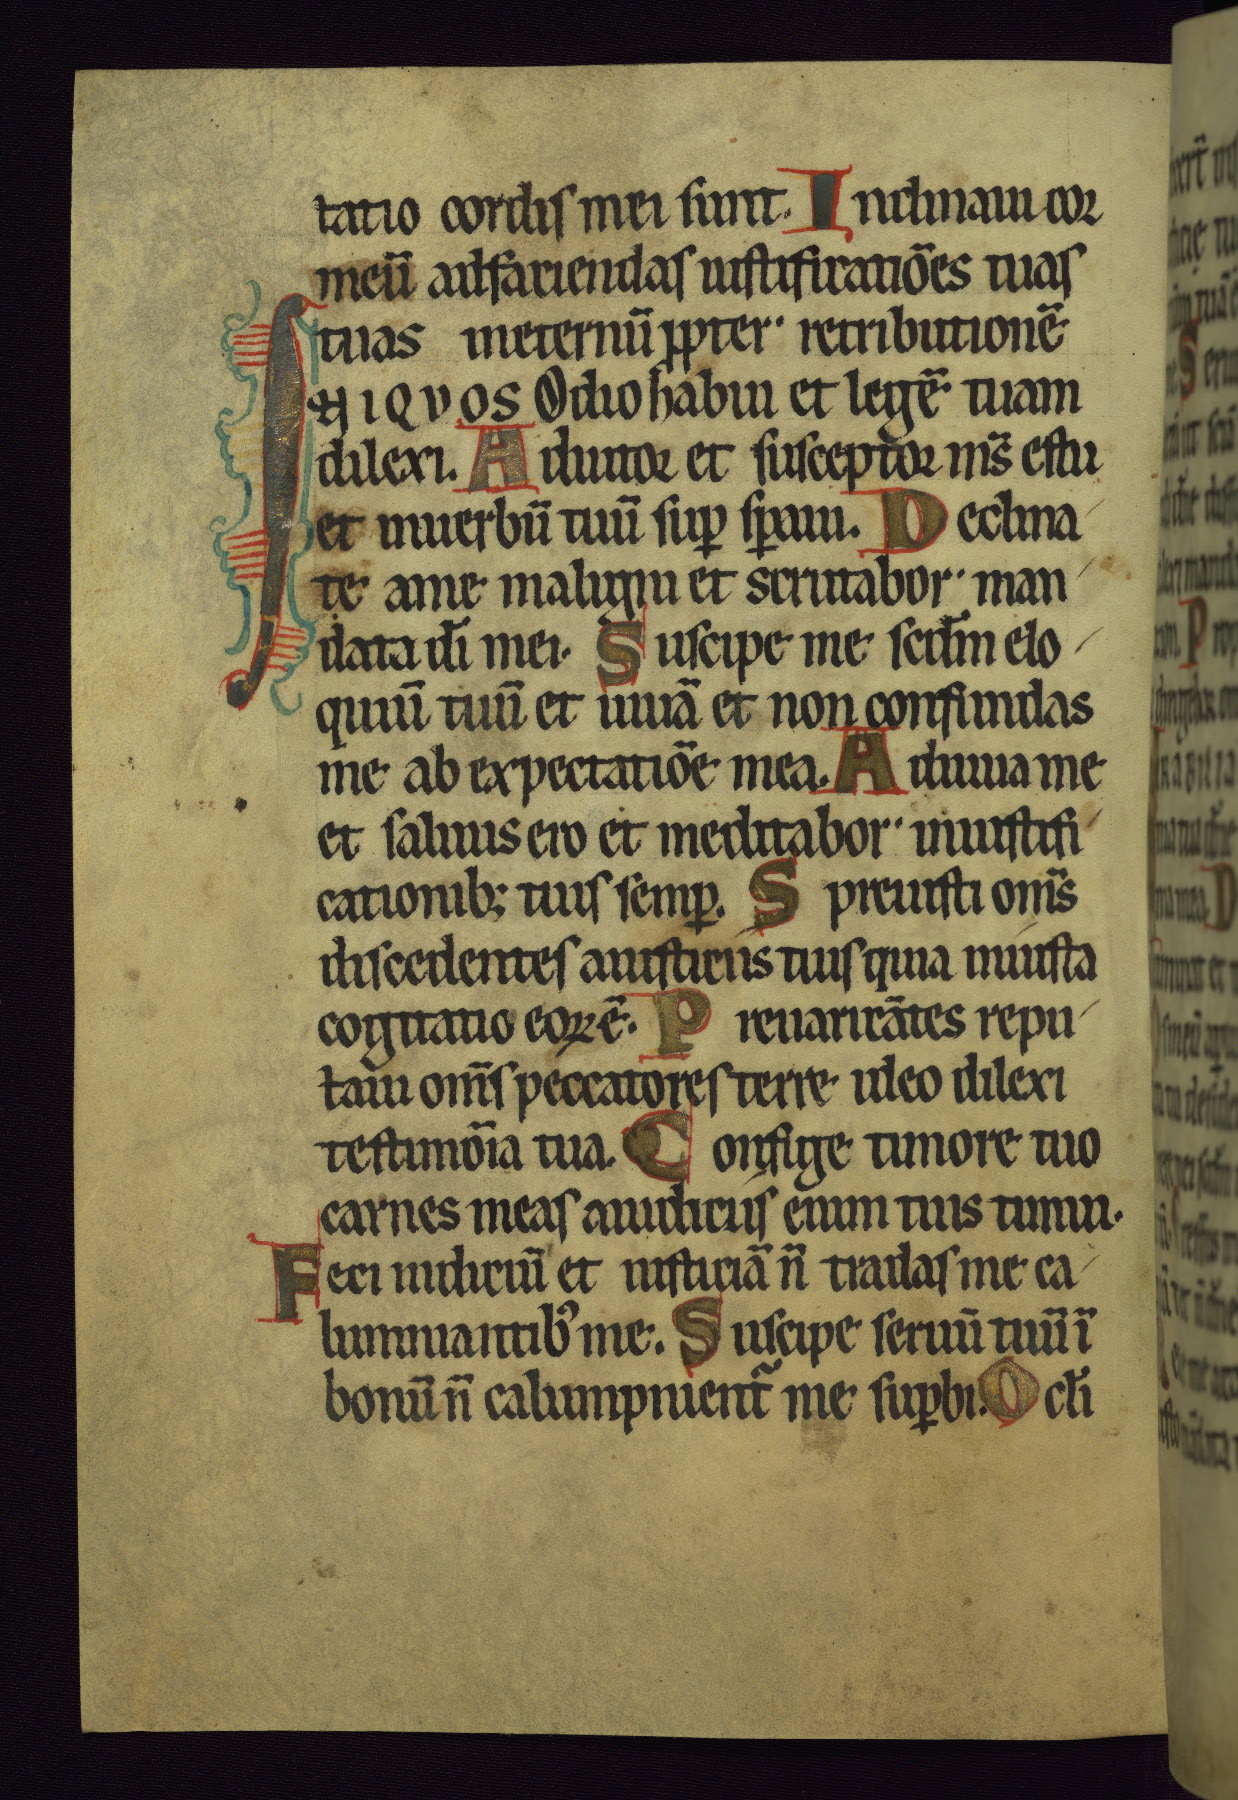 tatio cordis mei sunt. Inclinaui cor
meū adfaciendas iustificatiōes tuas
tuas ineternū ꝓpter retributionē
INIQVOS Odio habui et legē tuam
dilexi. Adiutor et susceptor ms̄ estu
et inuerbū tuū suꝑ sꝑaui. Declina
te ame maligni et scrutabor man
data dī mei. Suscipe me scdm̄ elo
quiū tuū et uiuā et non confundas
me ab expectatiōe mea. Adiuua me
et saluus ero et meditabor iniustifi
cationib; tuis semꝑ. Spreuisti oms̄
discedentes aiusticiis tuis quia iniusta
cogitatio eoꝝ ē. Preuaricātes repu
taui oms̄ peccatores terre ideo dilexi
testimōia tua. Confige timore tuo
carnes meas aiudiciis enim tuis timui.
Feci iudiciū et iusticiā n̄ tradas me ca
lumniantibꝰ me. Suscipe seruū tuū ī
bonū n̄ calumpnient̄ me suꝑbi. Ocl̄i